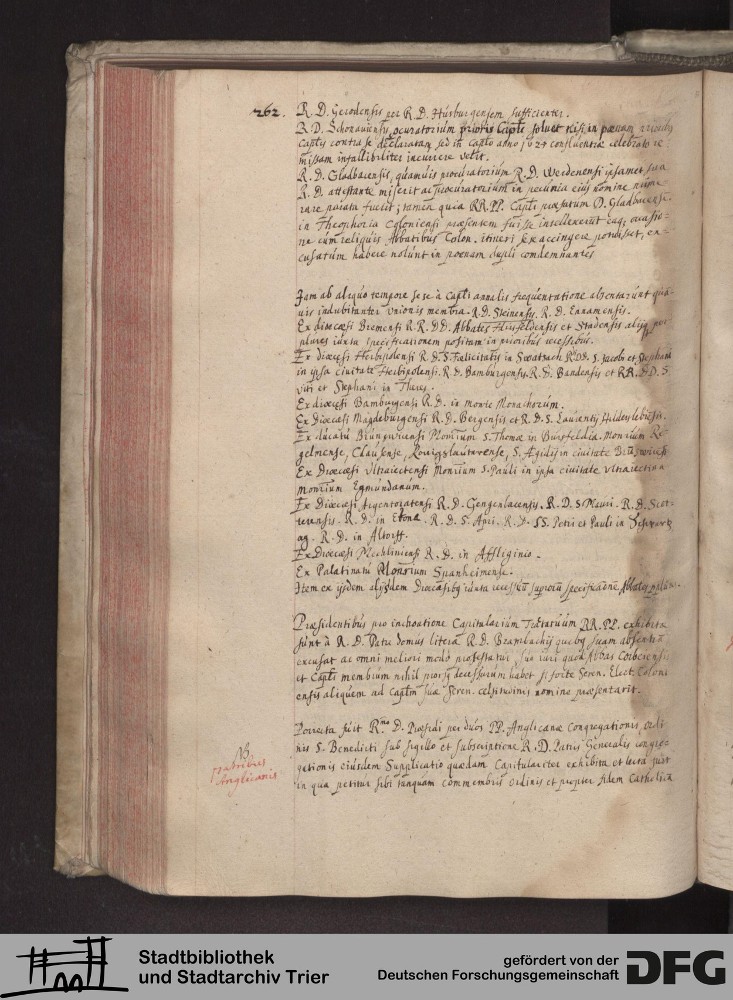 262. R. D. Gerodensis per R. D. Húrburgensem sufficienter.
R. D. Schonauiensis, procuratoriúm prioris Capli soluet nisi in pœnam
Caplis contra se declaratam, sed in Caplo anno Confluentiæ celebrato re-
missam infallibiliter incurrere velit.
R. D. Gladbacensis, quamúis procuratoriúm R. D. Werdenensi ipsamet sua
R. D. attestante miserit ac procuratoriúm in pecunia eiús nomine núme-
rare parata fuerit; tamen quia RR. PP. Capli præfatum D. Gladbacensē
in Theophoria Coloniensi præsentem fuisse intellexerút eaq; occasio-
ne cúm reliquis Abbatibus Colon. itineri se accingere potuisset, ex-
cusatúm habere nolúnt in pœnam dupli comdemnantes
Jam ab aliquo tempore sese à Capli annalis frequentatione absentarúnt quā-
uis indubitanter Vnionis membra. R. D. Steinensis. R. D. Ennamensis.
Ex diœcesi Bremensi R.R. DD. Abbates Hersfeldensis et Stadensis aliiq.
plures iúxta specificationem positam in prioribus recessibus.
Ex diœcesi Herbipolensi R. D. S. Fœlicitatis in Swartzach R. D. S. Jacobi et Stephani
in ipsa ciuitate Herbipolensi. R. D. Bamburgensis. R. D. Bandensis et RR. DD. S.
viti et Stephani in Theres.
Ex diœcesi Bambургensi R. D. in Monte Monachorúm.
Ex Diœcesi Magdeburgensi R. D. Bergensis et R. D. S. Laurentij Hildeslebiēsis.
Ex dúcatú Brunsuicensi Monriúm S. Thomæ in Búrsfeldia. Monriúm
gelmense, Clausense, Konigslúutterense, S. Ægidij in ciuitate
Ex Diœcesi Vltraiectensi Monriúm S. Pauli in ipsa ciuitate vltraiectina
Monriúm Egmúndanúm.
Ex Diœcesi Argentoratensi R. D. Gengenbacensis. R. D. S. Mauri. R. D. Scot-
terensis. R. D. in Etone. R. D. S. Apri. R. D. SS. Petri et Pauli in Schwartz
ag. R. D. in Altorff.
Ex Diœcesi Mechliniensi R. D. in Affliginio.
Ex Palatinatú Monriúm Spanheimense.
Item ex ijsdem alijsúem Diœcesibus iúxta recessúū supiorū specificationē Abbates
Præsidentibús pro inchoatione Capitularium Tractatuúm RR. PP. exhibitæ
súnt à R. D. Patre domus literæ R. D. Brambachij quibus suam absentiā
excusat ac omni meliori modo protestatur, suo iuri quod Abbas Corbeiensis
et Capli membrum nihil prorsus decessurum habet si forte Seren. Elect. Coloni-
ensis aliquem ad Caplm suæ Seren. celsitudinis nomine præsentarit.
NB
Porrecta fúit Rmo D. Præsidi per dúos PP. Anglicanæ Congregationis, ordi-
nis S. Benedicti sub sigillo et subscriptione R. D. Patris Generalis congre-
gationis eiúsdem Supplicatio quædam Capitulariter exhibita et lecta fuit
patribus
Anglicanis
in qua petitur sibi tanquam commembris ordinis et propter fidem Catholicā
Stadtbibliothek
und Stadtarchiv Trier
gefördert von der
Deutschen Forschungsgemeinschaft
DFG